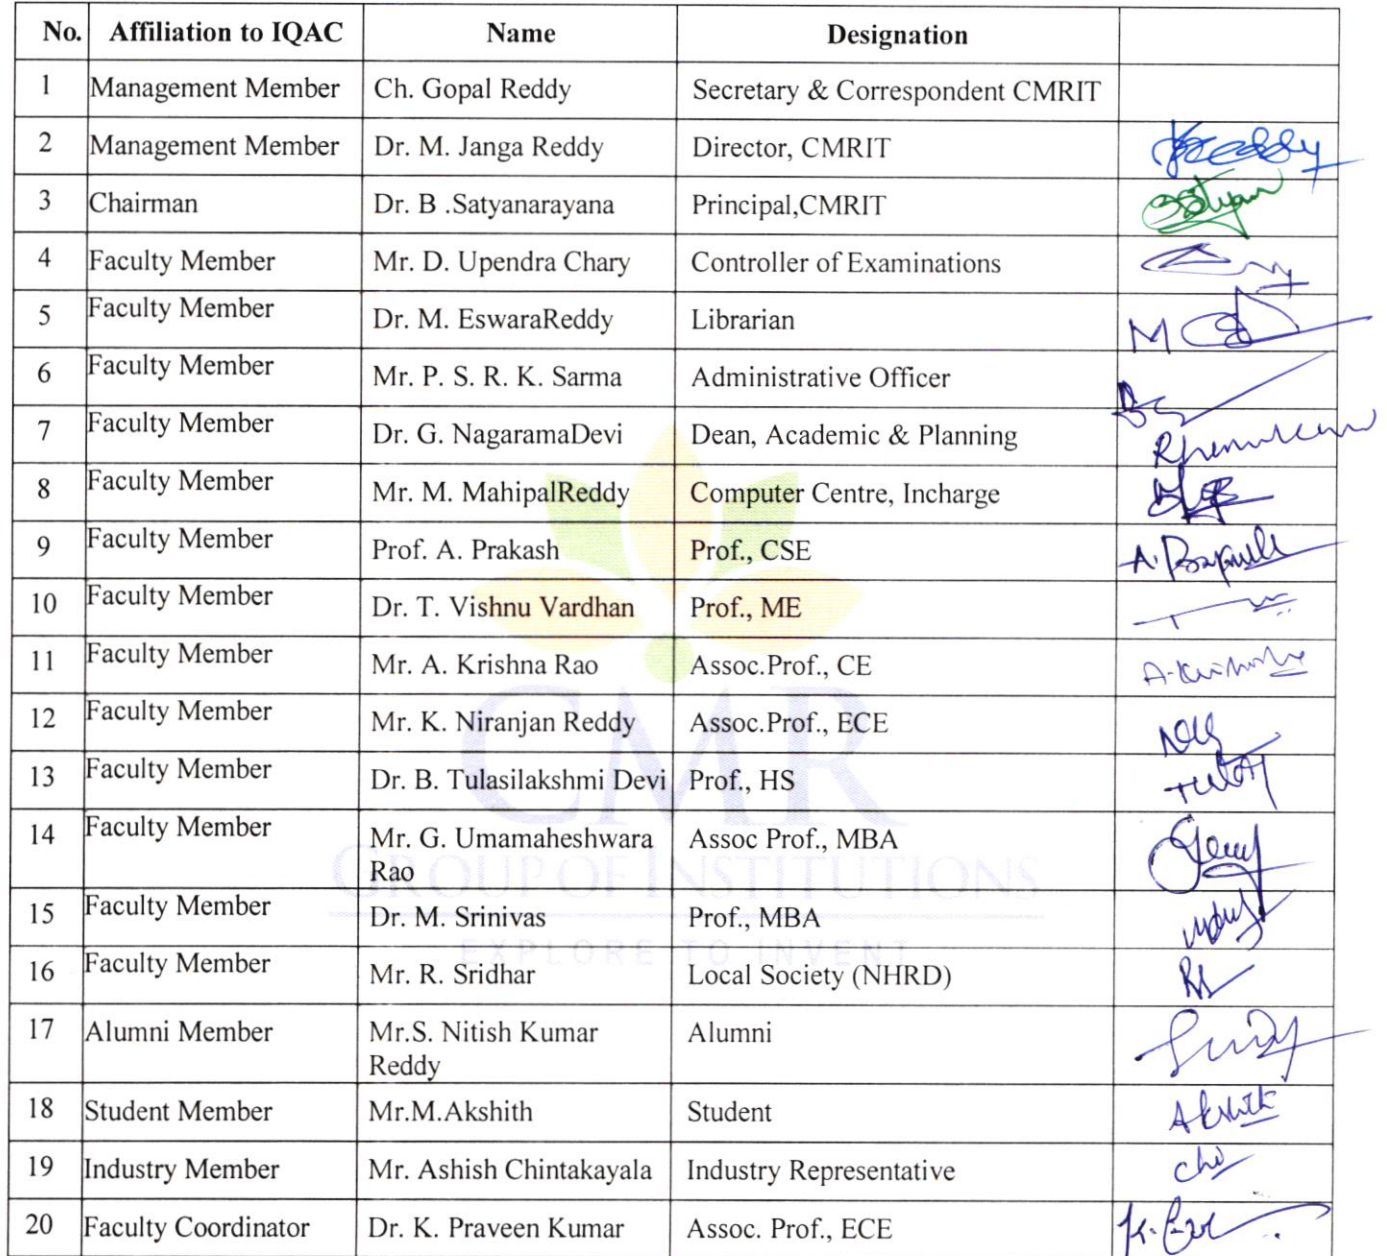 No. Affiliation to IQAC Name Designation
1 Management Member Ch. Gopal Reddy Secretary & Correspondent CMRIT
2 Management Member Dr. M. Janga Reddy Director, CMRIT
3 Chairman Dr. B .Satyanarayana Principal,CMRIT
4 Faculty Member Mr. D. Upendra Chary Controller of Examinations
5 Faculty Member Dr. M. EswaraReddy Librarian
6 Faculty Member Mr. P. S. R. K. Sarma Administrative Officer
7 Faculty Member Dr. G. NagaramaDevi Dean, Academic & Planning
8 Faculty Member Mr. M. MahipalReddy Computer Centre, Incharge
9 Faculty Member Prof. A. Prakash Prof., CSE
10 Faculty Member Dr. T. Vishnu Vardhan Prof., ME
11 Faculty Member Mr. A. Krishna Rao Assoc.Prof., CE
12 Faculty Member Mr. K. Niranjan Reddy Assoc.Prof., ECE
13 Faculty Member Dr. B. Tulasilakshmi Devi Prof., HS
14 Faculty Member Mr. G. Umamaheshwara Assoc Prof., MBA
Rao
15 Faculty Member Dr. M. Srinivas Prof., MBA
16 Faculty Member Mr. R. Sridhar Local Society (NHRD)
17 Alumni Member Mr.S. Nitish Kumar Alumni
Reddy
18 Student Member Mr.M.Akshith Student Akshith
19 Industry Member Mr. Ashish Chintakayala Industry Representative
20 Faculty Coordinator Dr. K. Praveen Kumar Assoc. Prof., ECE
CMR
GROUP OF INSTITUTIONS
EXPLORE TO INVENT